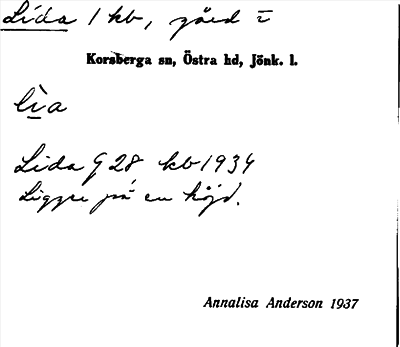 Lida 1 hb, gård
Korsberga sn, Östra hd, Jönk. l.
lìa
Lida G 28 kb 1934
Ligger på en höjd.
Annalisa Anderson 1937